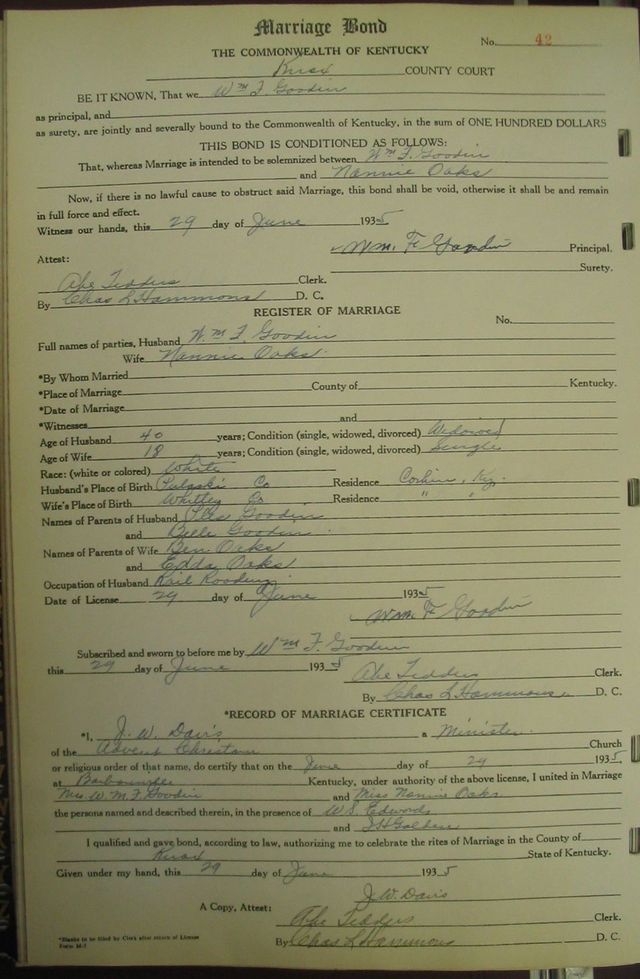 Marriage Bond
No. 42
THE COMMONWEALTH OF KENTUCKY
Knox COUNTY COURT
BE IT KNOWN, That we Wm F. Goodin
as principal, and
as surety, are jointly and severally bound to the Commonwealth of Kentucky, in the sum of ONE HUNDRED DOLLARS
THIS BOND IS CONDITIONED AS FOLLOWS:
That, whereas Marriage is intended to be solemnized between Wm F. Goodin
and Nannie Oaks
Now, if there is no lawful cause to obstruct said Marriage, this bond shall be void, otherwise it shall be and remain
in full force and effect.
Witness our hands, this 29 day of June 1935
Wm. F. Goodin Principal.
Attest: Surety.
Abe Tedders Clerk.
By Chas L Hammons D. C.
REGISTER OF MARRIAGE
No.
Full names of parties, Husband W. m F. Goodin
Wife Nannie Oaks
*By Whom Married
*Place of Marriage County of Kentucky.
*Date of Marriage
*Witnesses and
Age of Husband 40 years; Condition (single, widowed, divorced) Widowed
Age of Wife 18 years; Condition (single, widowed, divorced) Single
Race: (white or colored) White
Husband's Place of Birth Pulaski Co Residence Corbin, Ky.
Wife's Place of Birth Whitley Co Residence " "
Names of Parents of Husband Goodin
and Belle Goodin
Names of Parents of Wife Ben Oaks
and Edda Oaks
Occupation of Husband Rail Roading
Date of License 29 day of June 1935
Wm F Goodin
Subscribed and sworn to before me by Wm F. Goodin
this 29 day of June 1935
Abe Tedders Clerk.
By Chas L Hammons D. C.
*RECORD OF MARRIAGE CERTIFICATE
*I, J. W. Davis a Minister
of the Advent Christian Church
or religious order of that name, do certify that on the June day of 29 1935
at Barbourville Kentucky, under authority of the above license, I united in Marriage
W. M. F. Goodin and Miss Nannie Oaks
the persons named and described therein, in the presence of W. S. Edwards
and
I qualified and gave bond, according to law, authorizing me to celebrate the rites of Marriage in the County of
Knox State of Kentucky.
Given under my hand, this 29 day of June 1935
J. W. Davis
A Copy, Attest: Abe Tedders Clerk.
By Chas L Hammons D. C.
*Blanks to be filled by Clerk after return of License